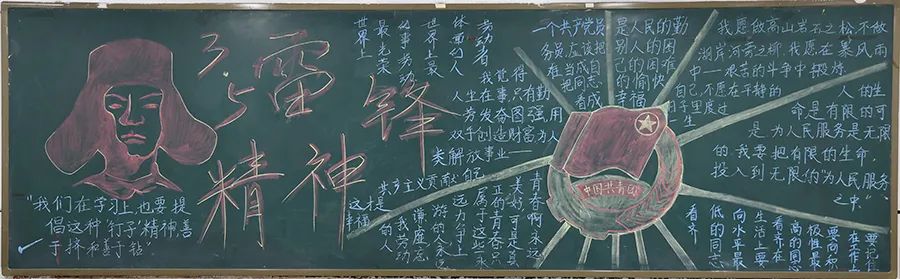 3.5
雷锋
精神
"我们在学习上也要提
倡这种"钉子"精神善
于挤和善于钻"
世界上
最光荣
的事劳动
世界上最
体面的人
劳动者
我觉得
人生在事,只有勤
劳发奋图强,用
双手创造财富为人
类解放事业——
共产主义贡献自己
这才是
幸福
一个共产党员
是人民的勤
务员应该把
别人的困
难当成自
己的困难
把同志
的愉快
看成
幸福
我愿做高山岩石之松不做
湖岸河旁之柳我愿在暴风雨
中一艰苦的斗争中锻炼
自己,不愿在平静的
日子里度过
一生
人的生
命是有限的可
是为人民服务是无限
的,我要把有限的生命,
投入到无限的为人民服务
之中"
中国共青团
青春啊永远
是美好可是真
正的青春只
属于这些永
远力争上
游的人永远
忘我劳动
的人
要记住
在工作上
要向积
极性最
高的同
看齐在
生活上要
向水平最
低的同志
看齐